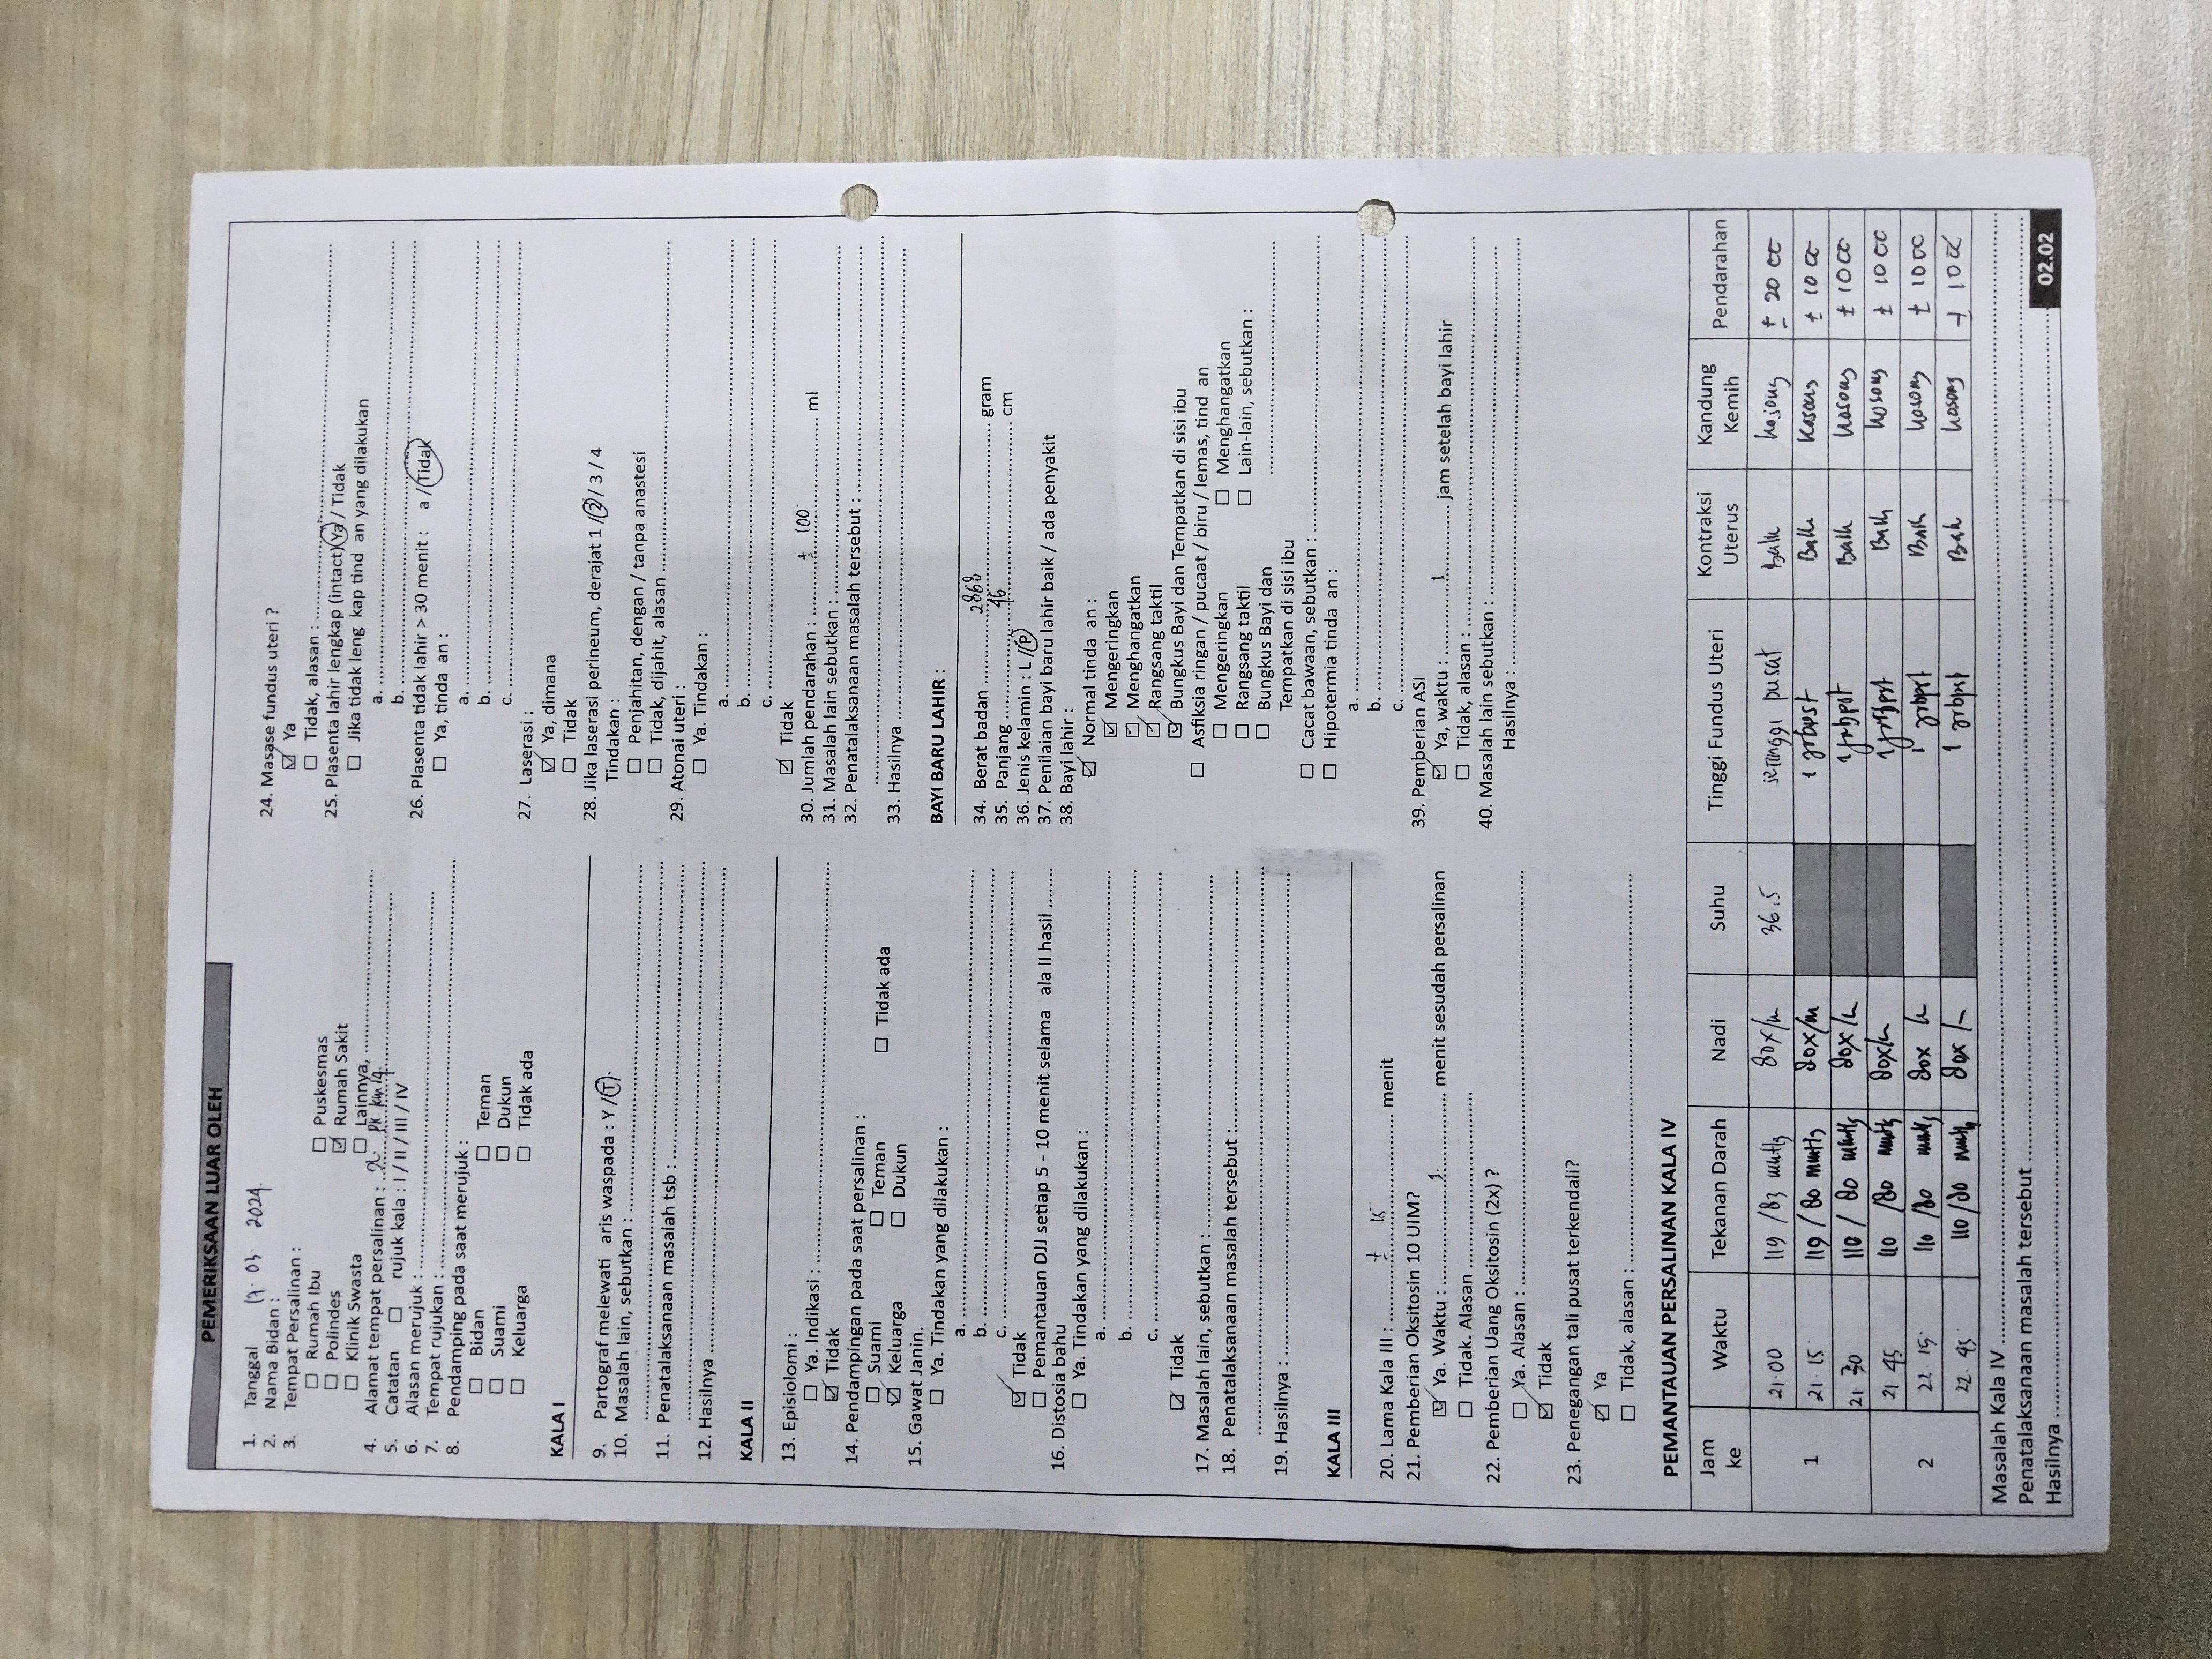 PEMERIKSAAN LUAR OLEH
1. Tanggal 17. 03. 2024.
2. Nama Bidan :
3. Tempat Persalinan :
☐ Rumah Ibu ☐ Puskesmas
☐ Polindes ☑ Rumah Sakit
☐ Klinik Swasta ☐ Lainnya, ..............................
4. Alamat tempat persalinan : Jl. PK km 19
5. Catatan ☐ rujuk kala : I / II / III / IV
6. Alasan merujuk : ..............................
7. Tempat rujukan : ..............................
8. Pendamping pada saat merujuk :
☐ Bidan ☐ Teman
☐ Suami ☐ Dukun
☐ Keluarga ☐ Tidak ada
KALA I
9. Partograf melewati aris waspada : Y / T
10. Masalah lain, sebutkan : ..............................
..............................
11. Penatalaksanaan masalah tsb : ..............................
..............................
12. Hasilnya ..............................
KALA II
13. Episiolomi :
☐ Ya. Indikasi : ..............................
☑ Tidak
14. Pendampingan pada saat persalinan :
☐ Suami ☐ Teman ☐ Tidak ada
☑ Keluarga ☐ Dukun
15. Gawat Janin.
☐ Ya. Tindakan yang dilakukan :
a. ..............................
b. ..............................
c. ..............................
☑ Tidak
☐ Pemantauan DJJ setiap 5 - 10 menit selama ala II hasil ........
16. Distosia bahu
☐ Ya. Tindakan yang dilakukan :
a. ..............................
b. ..............................
c. ..............................
☑ Tidak
17. Masalah lain, sebutkan : ..............................
18. Penatalaksanaan masalah tersebut :..............................
..............................
19. Hasilnya : ..............................
KALA III
20. Lama Kala III : ± 15 menit
21. Pemberian Oksitosin 10 UIM?
☑ Ya. Waktu : 1 menit sesudah persalinan
☐ Tidak. Alasan ..............................
22. Pemberian Uang Oksitosin (2x) ?
☐ Ya. Alasan : ..............................
☑ Tidak
23. Penegangan tali pusat terkendali?
☑ Ya
☐ Tidak, alasan : ..............................
24. Masase fundus uteri ?
☑ Ya
☐ Tidak, alasan : ..............................
25. Plasenta lahir lengkap (intact) Ya / Tidak
☐ Jika tidak leng kap tind an yang dilakukan
a. ..............................
b. ..............................
26. Plasenta tidak lahir > 30 menit : a / Tidak
☐ Ya, tinda an :
a. ..............................
b. ..............................
c. ..............................
27. Laserasi :
☑ Ya, dimana
☐ Tidak
28. Jika laserasi perineum, derajat 1 / 2 / 3 / 4
Tindakan :
☐ Penjahitan, dengan / tanpa anastesi
☐ Tidak, dijahit, alasan ..............................
29. Atonai uteri :
☐ Ya. Tindakan :
a. ..............................
b. ..............................
c. ..............................
☑ Tidak
30. Jumlah pendarahan : ± 100 ml
31. Masalah lain sebutkan : ..............................
32. Penatalaksanaan masalah tersebut : ..............................
..............................
33. Hasilnya ..............................
BAYI BARU LAHIR :
34. Berat badan 2868 gram
35. Panjang 46 cm
36. Jenis kelamin : L / P
37. Penilaian bayi baru lahir baik / ada penyakit
38. Bayi lahir :
☑ Normal tinda an :
☑ Mengeringkan
☑ Menghangatkan
☑ Rangsang taktil
☑ Bungkus Bayi dan Tempatkan di sisi ibu
☐ Asfiksia ringan / pucaat / biru / lemas, tind an
☐ Mengeringkan ☐ Menghangatkan
☐ Rangsang taktil ☐ Lain-lain, sebutkan :
☐ Bungkus Bayi dan ..............................
Tempatkan di sisi ibu
☐ Cacat bawaan, sebutkan : ..............................
☐ Hipotermia tinda an :
a. ..............................
b. ..............................
c. ..............................
39. Pemberian ASI
☑ Ya, waktu : 1 jam setelah bayi lahir
☐ Tidak, alasan : ..............................
40. Masalah lain sebutkan : ..............................
Hasilnya : ..............................
PEMANTAUAN PERSALINAN KALA IV
Jam ke Waktu Tekanan Darah Nadi Suhu Tinggi Fundus Uteri Kontraksi Uterus Kandung Kemih Pendarahan
1 21.00 119 /83 mmHg 80x/m 36.5 setinggi pusat Baik kosong ± 20 cc
21.15 119 / 80 mmHg 80x/m 1 jrbpst Baik kosong ± 10 cc
21 30 110 / 80 mmHg 80x/m 1 jrbpst Baik kosong ± 10 cc
2 21 45 110 /80 mmHg 80x/m 1 jrbpst Baik kosong ± 10 cc
22.15 110 /80 mmHg 80x m 1 jrbpst Baik kosong ± 10 cc
22.45 110 /80 mmHg 80x /m 1 jrbpst Baik kosong ± 10 cc
Masalah Kala IV ..............................
Penatalaksanaan masalah tersebut ..............................
Hasilnya ..............................
02.02